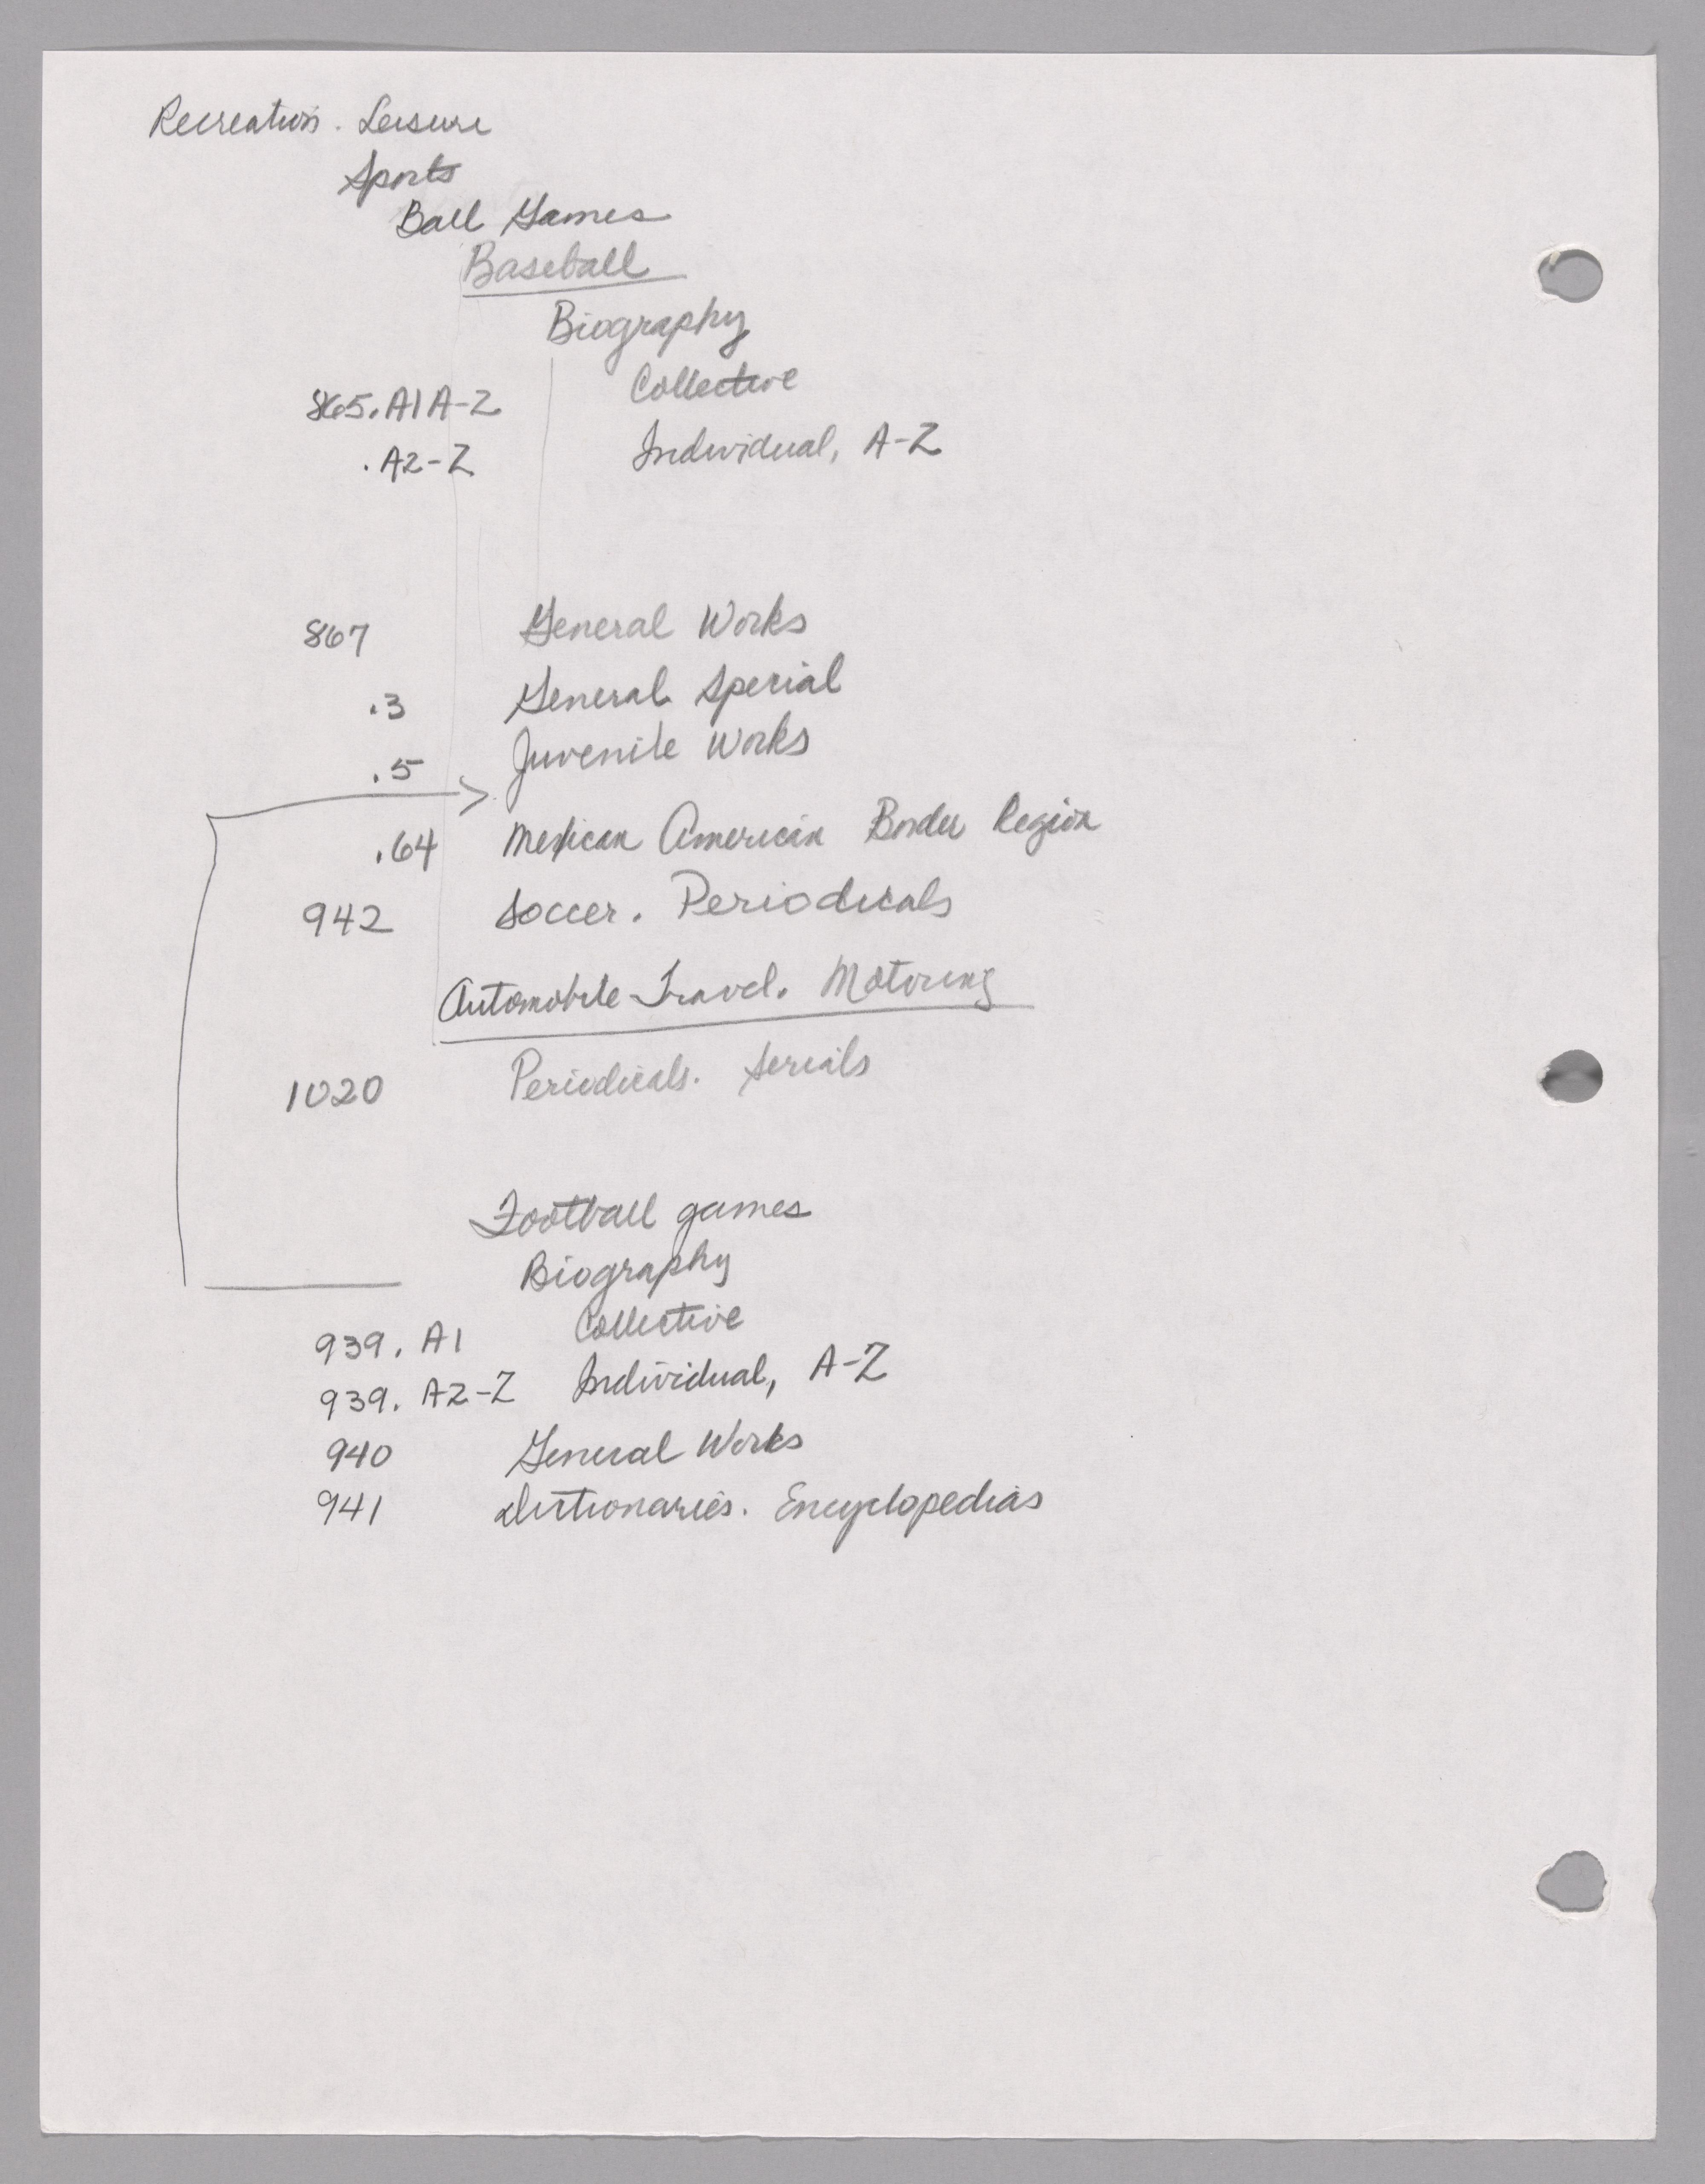 Recreation. Leisure
Sports
Ball Games
Baseball
Biography
Collective
865.A1A-Z
Individual, A-Z
.A2-Z
867 General Works
.3 General Special
.5 Juvenile Works
.64 Mexican American Border Region
942 Soccer. Periodicals
Automobile Travel. Motoring
1020 Periodicals. Serials
Football games
Biography
939.A1 Collective
939.A2-Z Individual, A-Z
940 General Works
941 Dictionaries. Encyclopedias